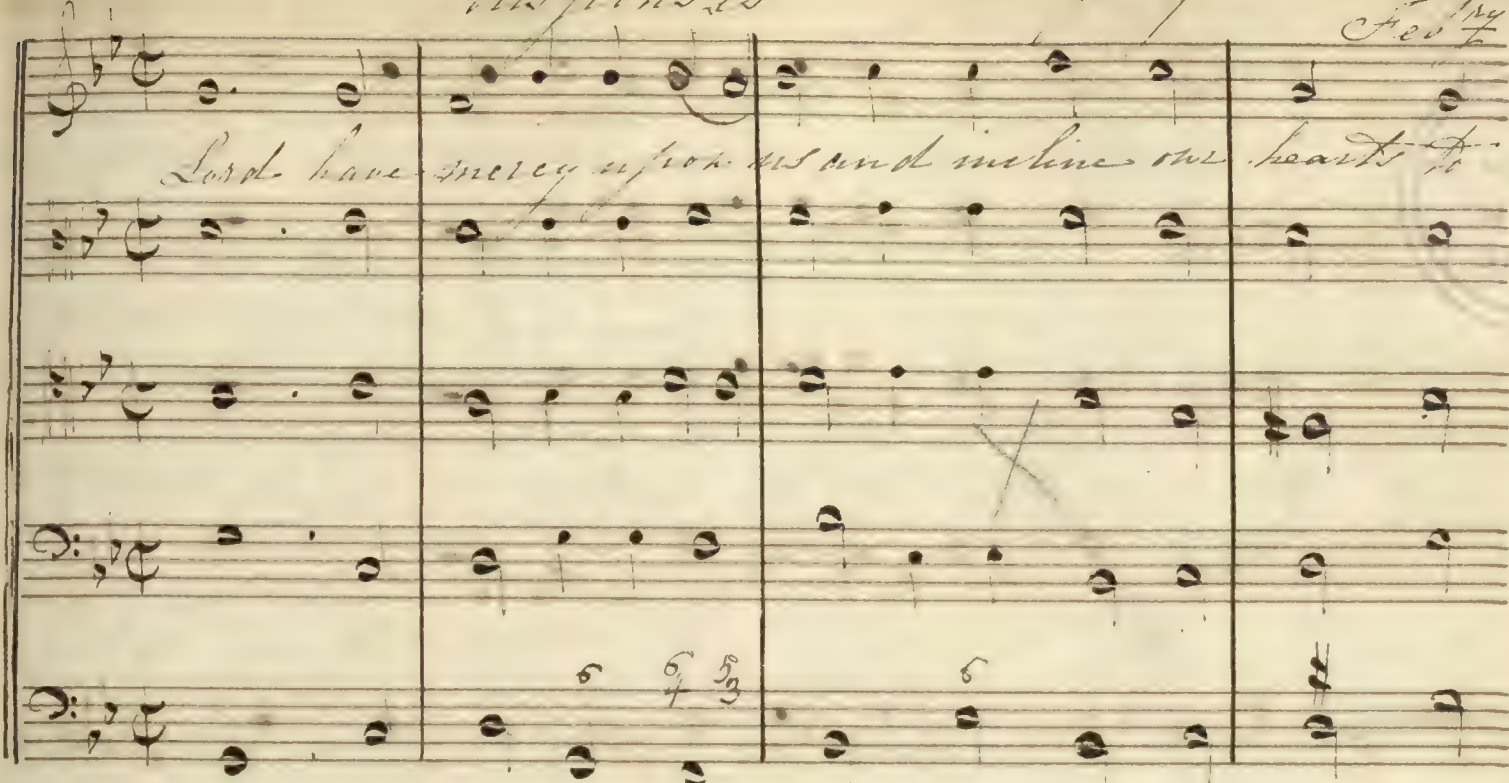 Feb ry
Lord have mercy upon us and incline our hearts to
6 6 5 6 #
4 3